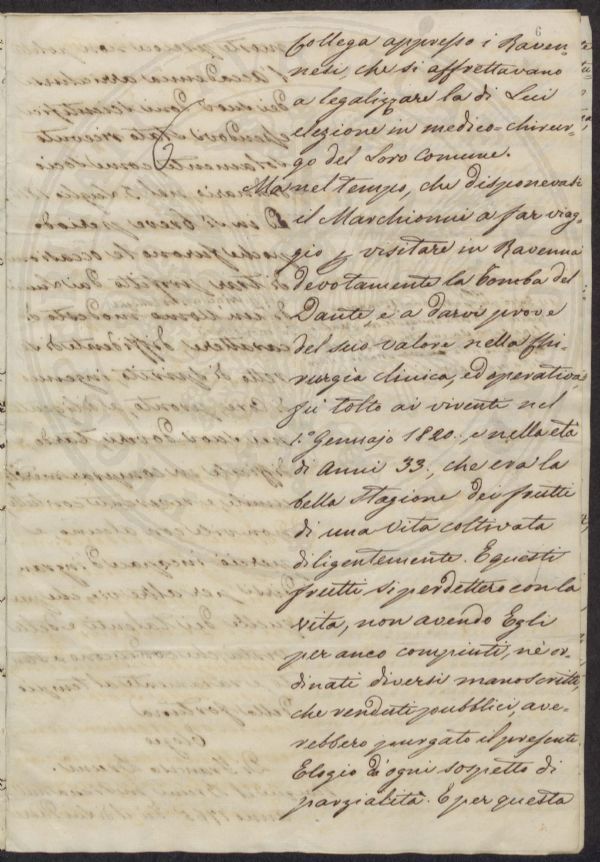 6
Collega appresso i Raven-
nesi, che si affrettavano
a legalizzare la di Lui
elezione in medico-chirur-
go del Loro Comune.
Ma nel tempo, che disponevasi
il Marchionni a far viag-
gio p visitare in Ravenna
devotamente la Tomba del
Dante, e a darvi prove
del suo valore nella Chi-
rurgia clinica, ed operativa
fù tolto ai viventi nel
1.° Gennajo 1820. e nella età
di Anni 33., che era la
bella Stagione dei frutti
di una Vita coltivata
diligentemente. E questi
frutti si perdettero con la
Vita, non avendo Egli
per anco compiuti, nè or-
dinati diversi manoscritti,
che renduti pubblici, ave-
rebbero purgato il presente
Elogio d'ogni sospetto di
parzialità. E per questa